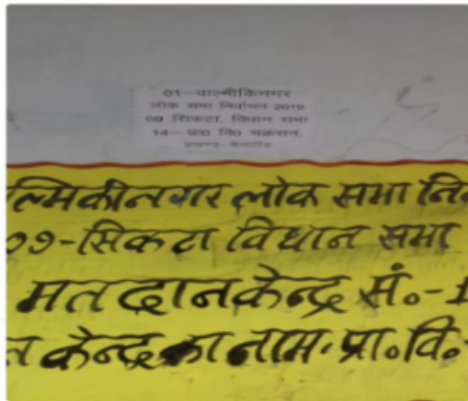 01-वाल्मीकिनगर
लोक सभा निर्वाचन 2019
09 सिकटा, विधान सभा
14- प्रा0 वि0 चक्रसन,
प्रखण्ड-मैनाटाँड
ल्मिकीनगर लोक सभा नि
09-सिकटा विधान सभा
मतदान केन्द्र सं०-1
त केन्द्र का नाम. प्रा.वि.